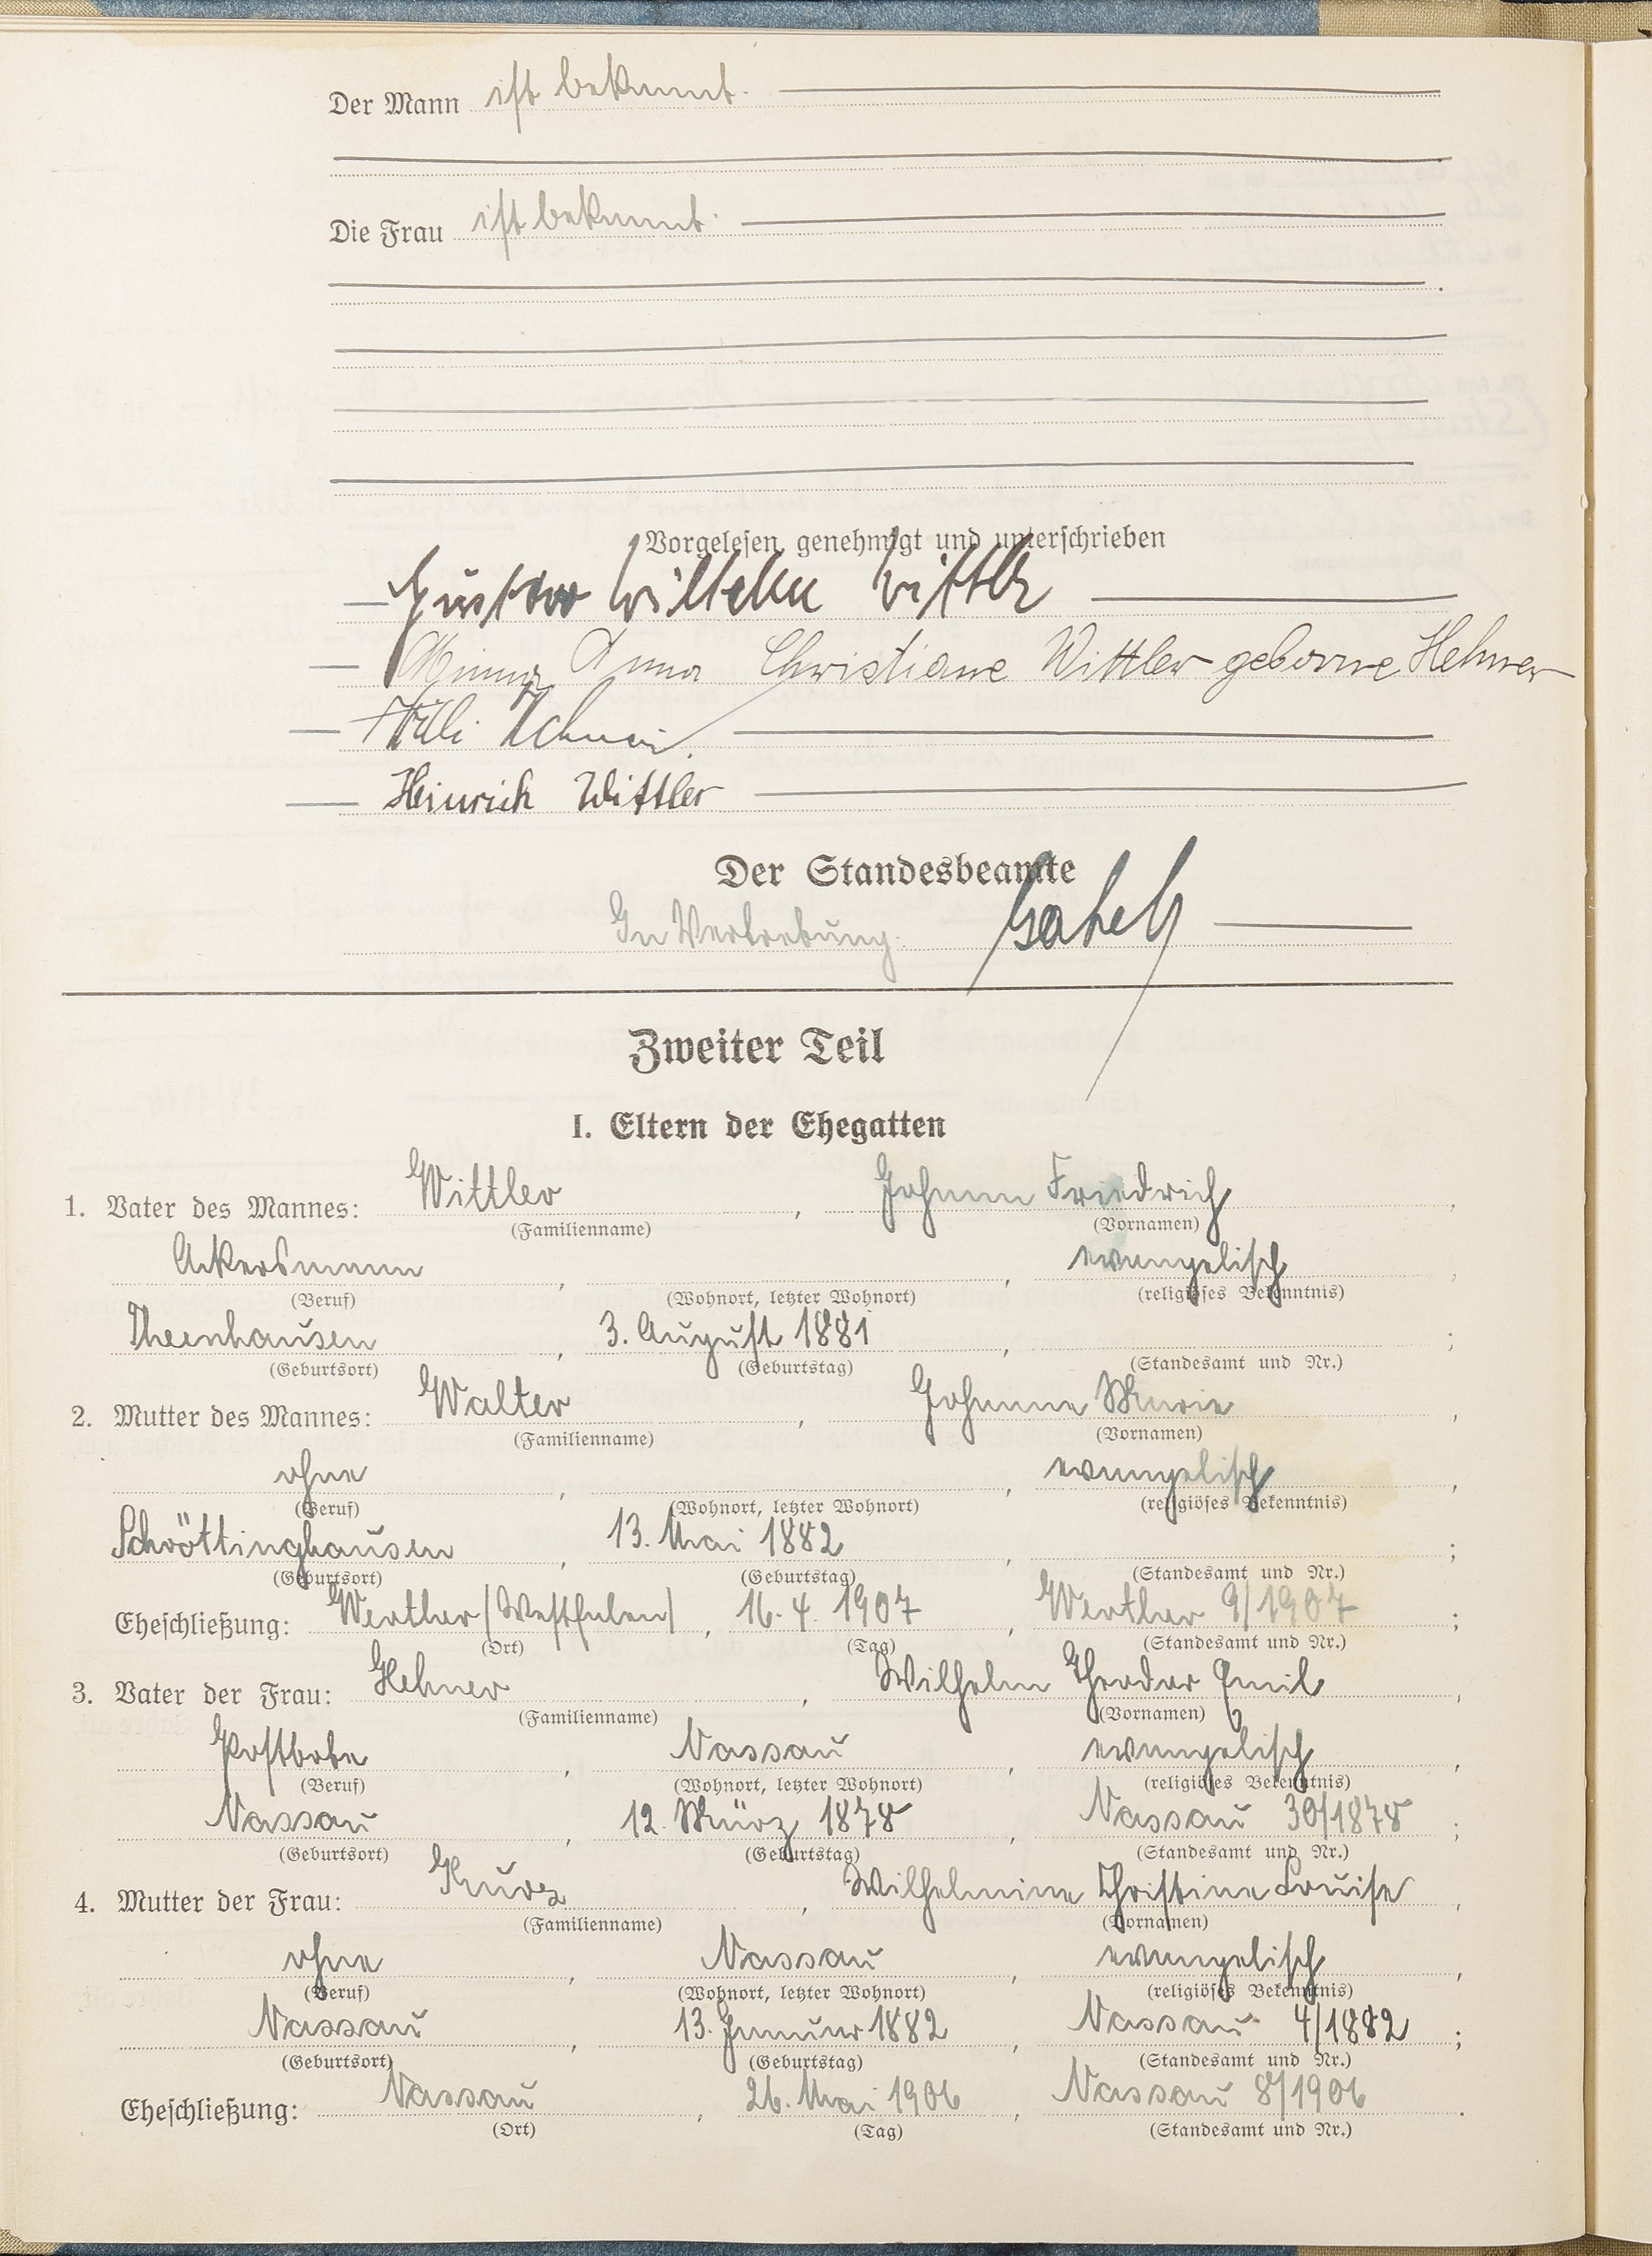 Der Mann ist bekannt.
Die Frau ist bekannt.
Vorgelesen, genehmigt und unterschrieben
Gustav Wilhelm Wittler
Minna Anna Christiane Wittler geborne Hehner
Willi
Heinrich Wittler
Der Standesbeamte
In Vertretung:
Zweiter Teil
I. Eltern der Ehegatten
1. Vater des Mannes: Wittler, Johann Friedrich,
(Familienname) (Vornamen)
Ackersmann, , evangelisch,
(Beruf) (Wohnort, letzter Wohnort) (religiöses Bekenntnis)
Theenhausen, 3. August 1881, ;
(Geburtsort) (Geburtstag) (Standesamt und Nr.)
2. Mutter des Mannes: Walter, Johanne Marie,
(Familienname) (Vornamen)
ohne, , evangelisch,
(Beruf) (Wohnort, letzter Wohnort) (religiöses Bekenntnis)
Schröttinghausen, 13. Mai 1882, ;
(Geburtsort) (Geburtstag) (Standesamt und Nr.)
Eheschließung: Werther (Westfalen), 16. 4. 1907, Werther 9/1907;
(Ort) (Tag) (Standesamt und Nr.)
3. Vater der Frau: Hehner, Wilhelm Theodor Emil,
(Familienname) (Vornamen)
Postbote, Nassau, evangelisch,
(Beruf) (Wohnort, letzter Wohnort) (religiöses Bekenntnis)
Nassau, 12. März 1878, Nassau 30/1878;
(Geburtsort) (Geburtstag) (Standesamt und Nr.)
4. Mutter der Frau: Kurz, Wilhelmine Christine Louise,
(Familienname) (Vornamen)
ohne, Nassau, evangelisch,
(Beruf) (Wohnort, letzter Wohnort) (religiöses Bekenntnis)
Nassau, 13. Januar 1882, Nassau 4/1882;
(Geburtsort) (Geburtstag) (Standesamt und Nr.)
Eheschließung: Nassau, 26. Mai 1906, Nassau 8/1906.
(Ort) (Tag) (Standesamt und Nr.)